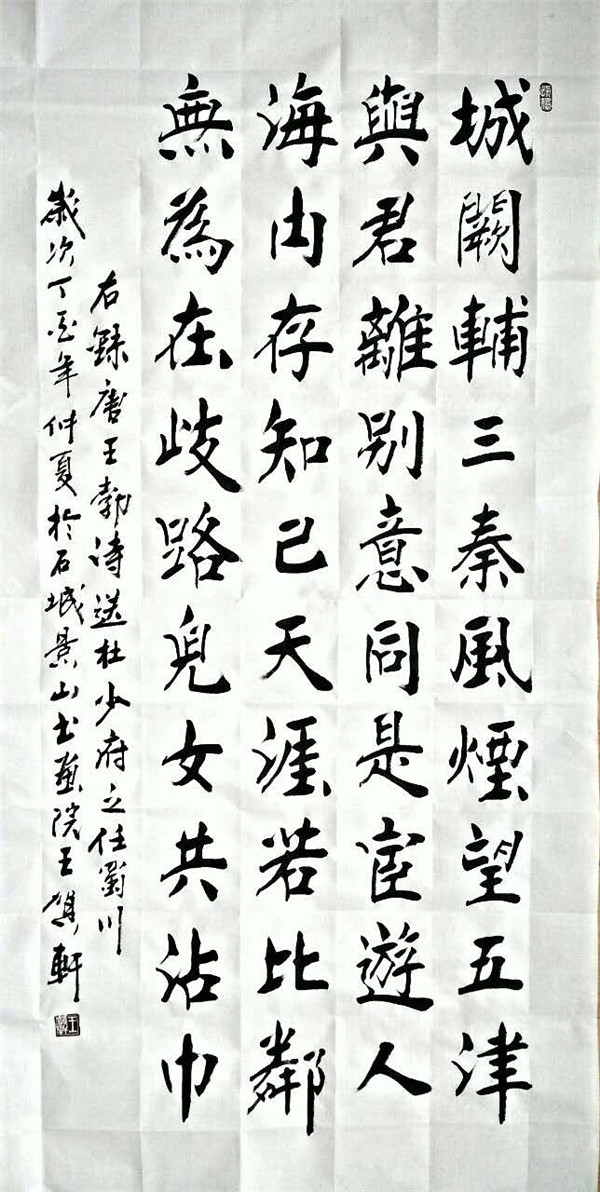 城闕輔三秦風煙望五津
與君離别意同是宦遊人
海内存知己天涯若比鄰
無為在歧路兒女共沾巾
右録唐王勃詩送杜少府之任蜀川
歲次丁酉年仲夏於石城景山書畫院王軒